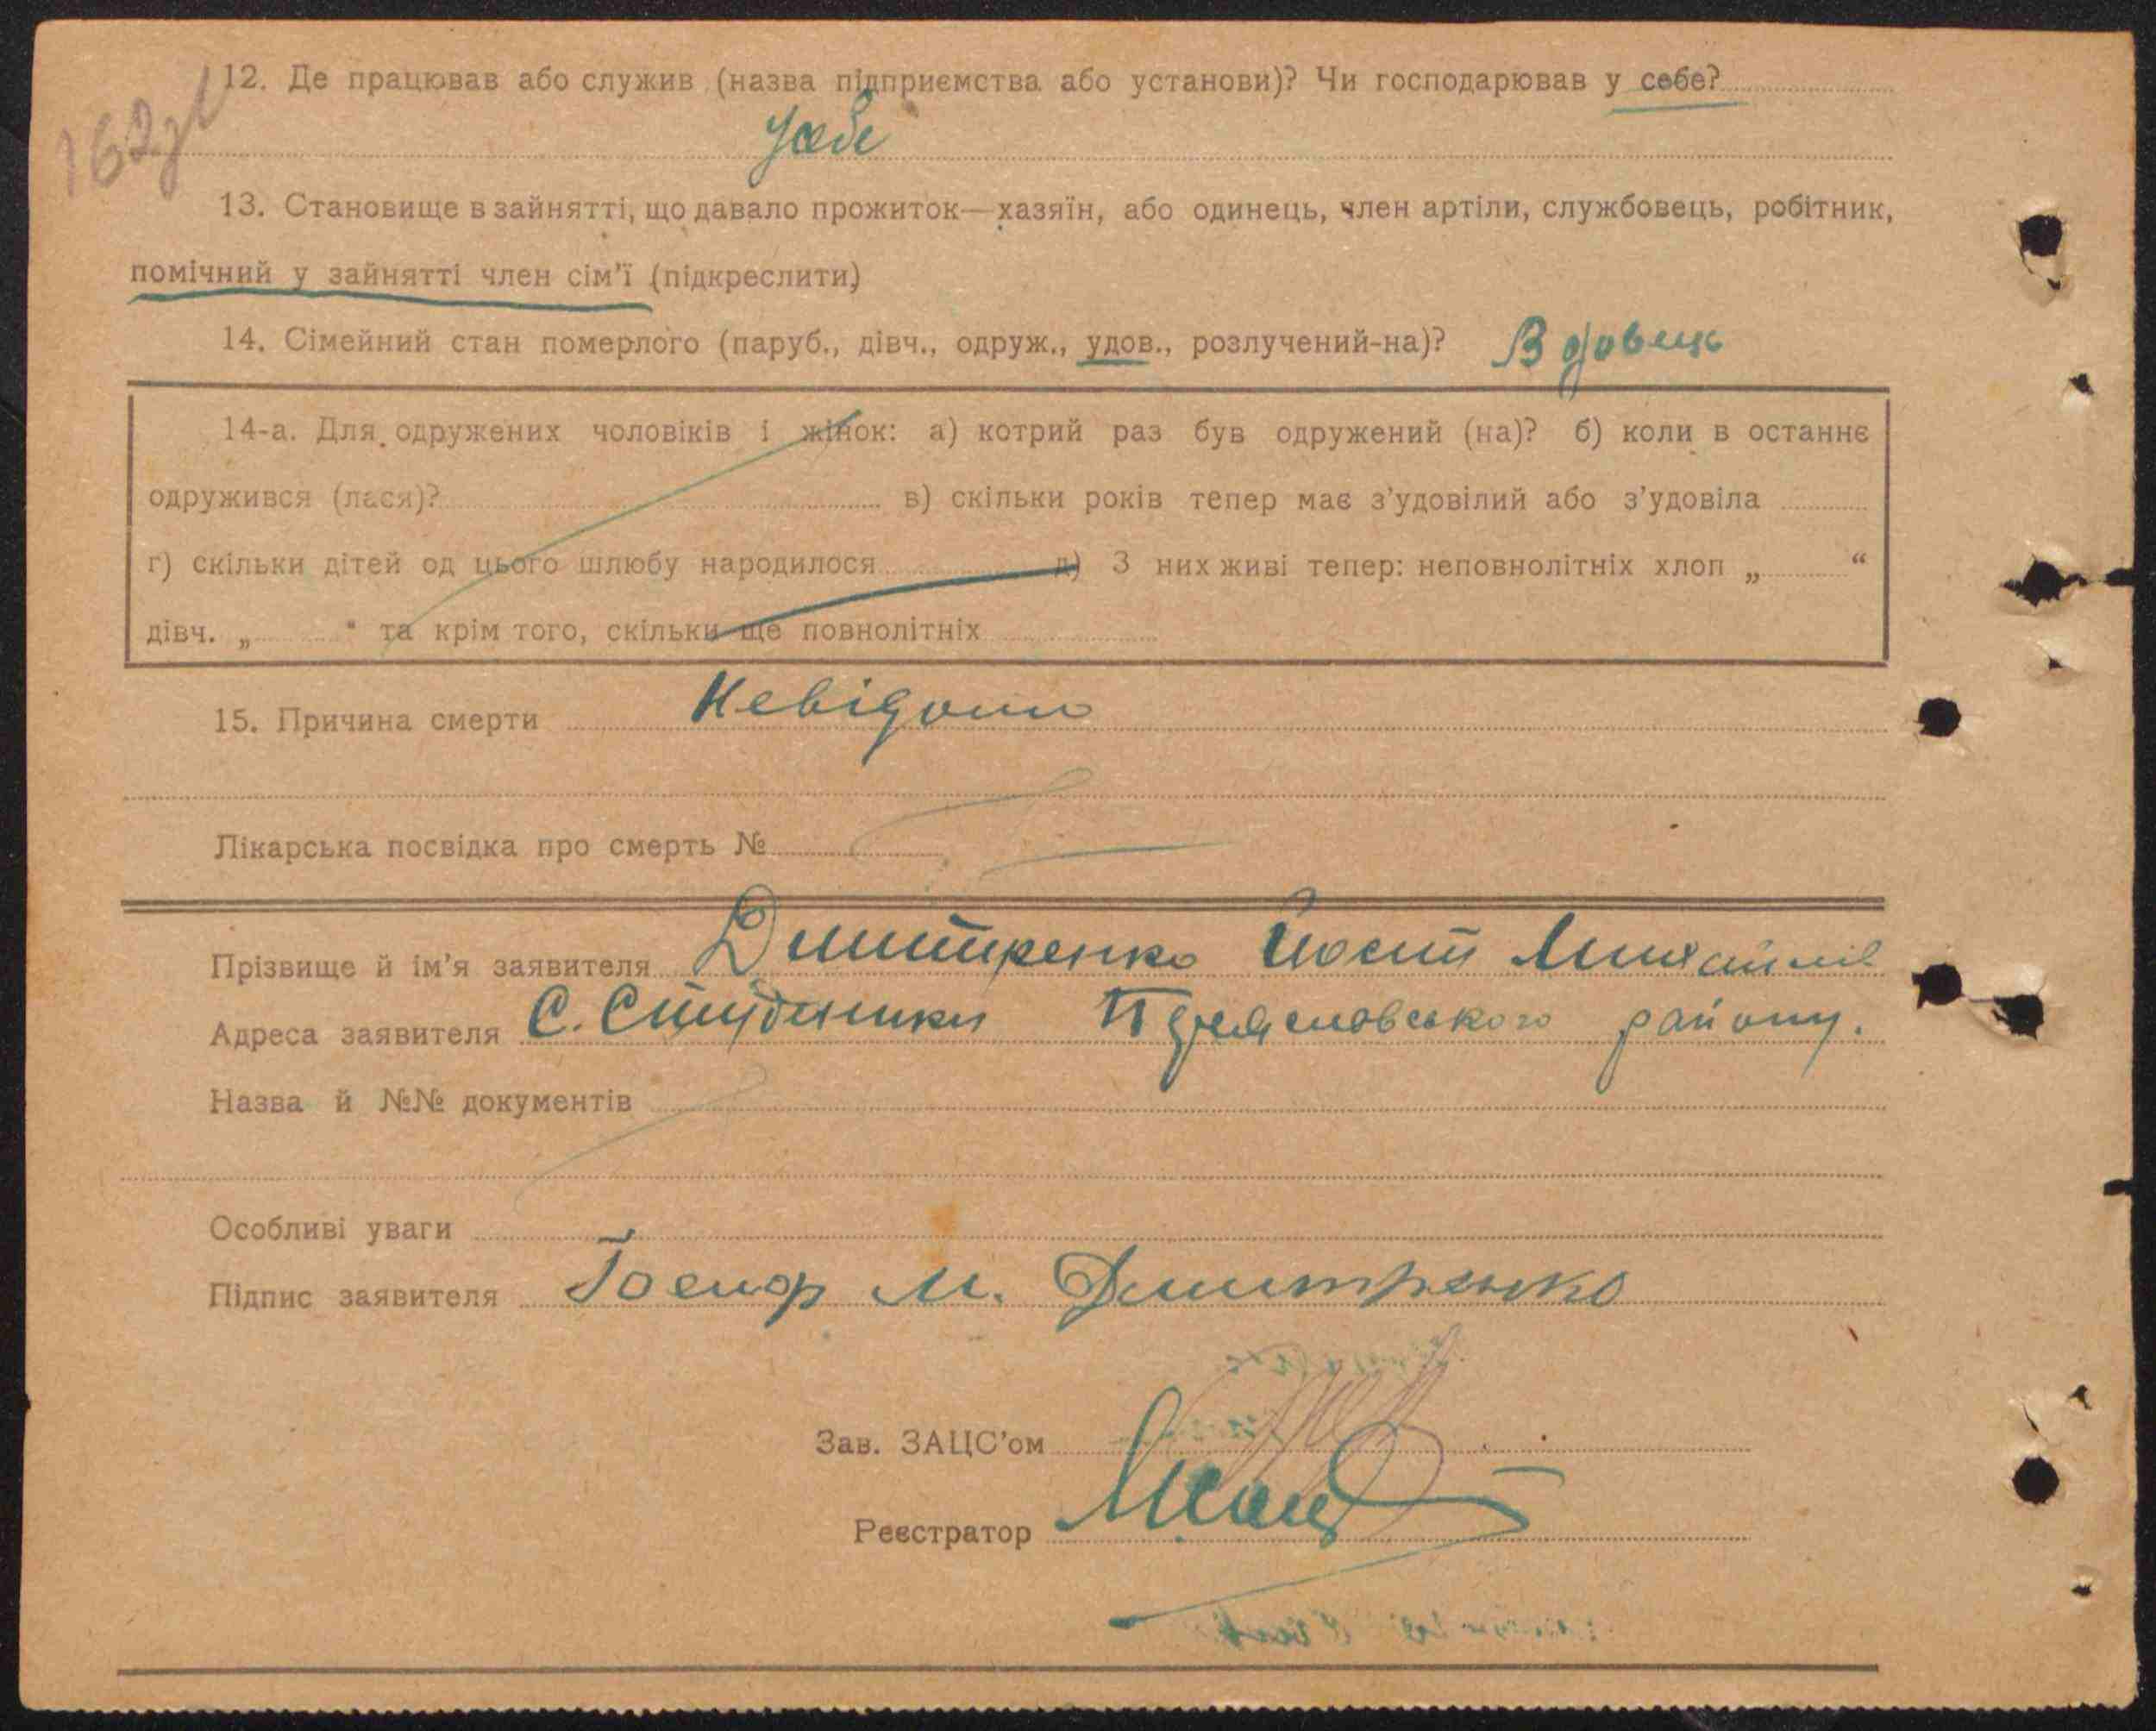 162зв
12. Де працював або служив (назва підприємства або установи)? Чи господарював у себе?
У себе
13. Становище в зайнятті, що давало прожиток—хазяїн, або одинець, член артіли, службовець, робітник,
помічний у зайнятті член сім'ї (підкреслити)
14. Сімейний стан померлого (паруб., дівч., одруж., удов., розлучений-на)? Вдовець
14-а. Для одружених чоловіків і жінок: а) котрий раз був одружений (на)? б) коли в останнє
одружився (лася)? в) скільки років тепер має з'удовілий або з'удовіла
г) скільки дітей од цього шлюбу народилося д) З них живі тепер: неповнолітніх хлоп „ “
дівч. „ “ та крім того, скільки ще повнолітніх
15. Причина смерти Невідомо
Лікарська посвідка про смерть №
Прізвище й ім'я заявителя Дмитренко Йосип Михайлів
Адреса заявителя С. Студеники району.
Назва й №№ документів
Особливі уваги
Підпис заявителя М. Дмитренко
Зав. ЗАЦС'ом
Реєстратор